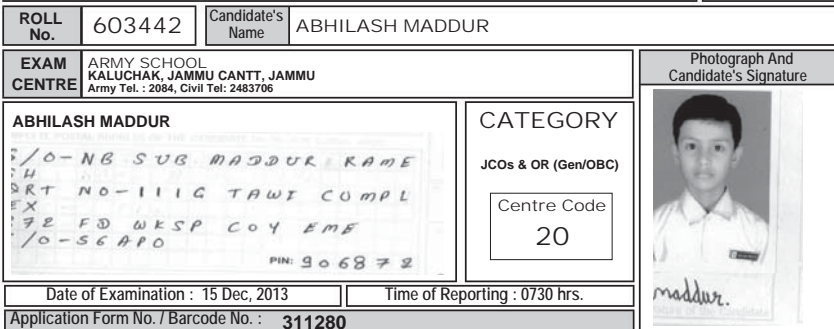 ROLL No. 603442 Candidate's Name ABHILASH MADDUR
EXAM CENTRE
ARMY SCHOOL
KALUCHAK, JAMMU CANTT, JAMMU
Army Tel. : 2084, Civil Tel: 2483706
Photograph And
Candidate's Signature
ABHILASH MADDUR
S/O-NB SUB MADDUR RAME
H
QRT NO-111G TAWI COMPL
EX
72 FD WKSP COY EME
/O-56APO
PIN: 906872
CATEGORY
JCOs & OR (Gen/OBC)
Centre Code
20
maddur.
Date of Examination : 15 Dec, 2013 Time of Reporting : 0730 hrs.
Application Form No. / Barcode No. : 311280